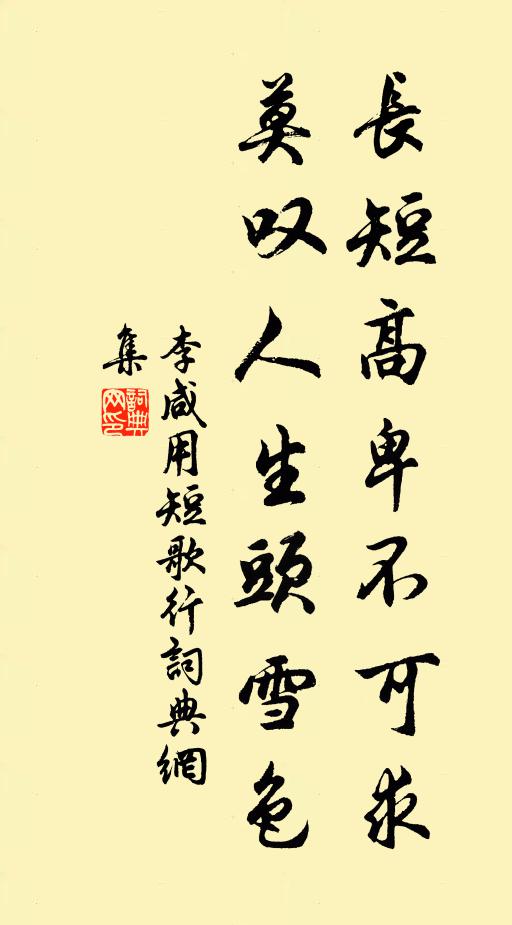 長短高卑不可求
莫叹人生頭雪色
李咸用短歌行詞典網
集
詞典网印